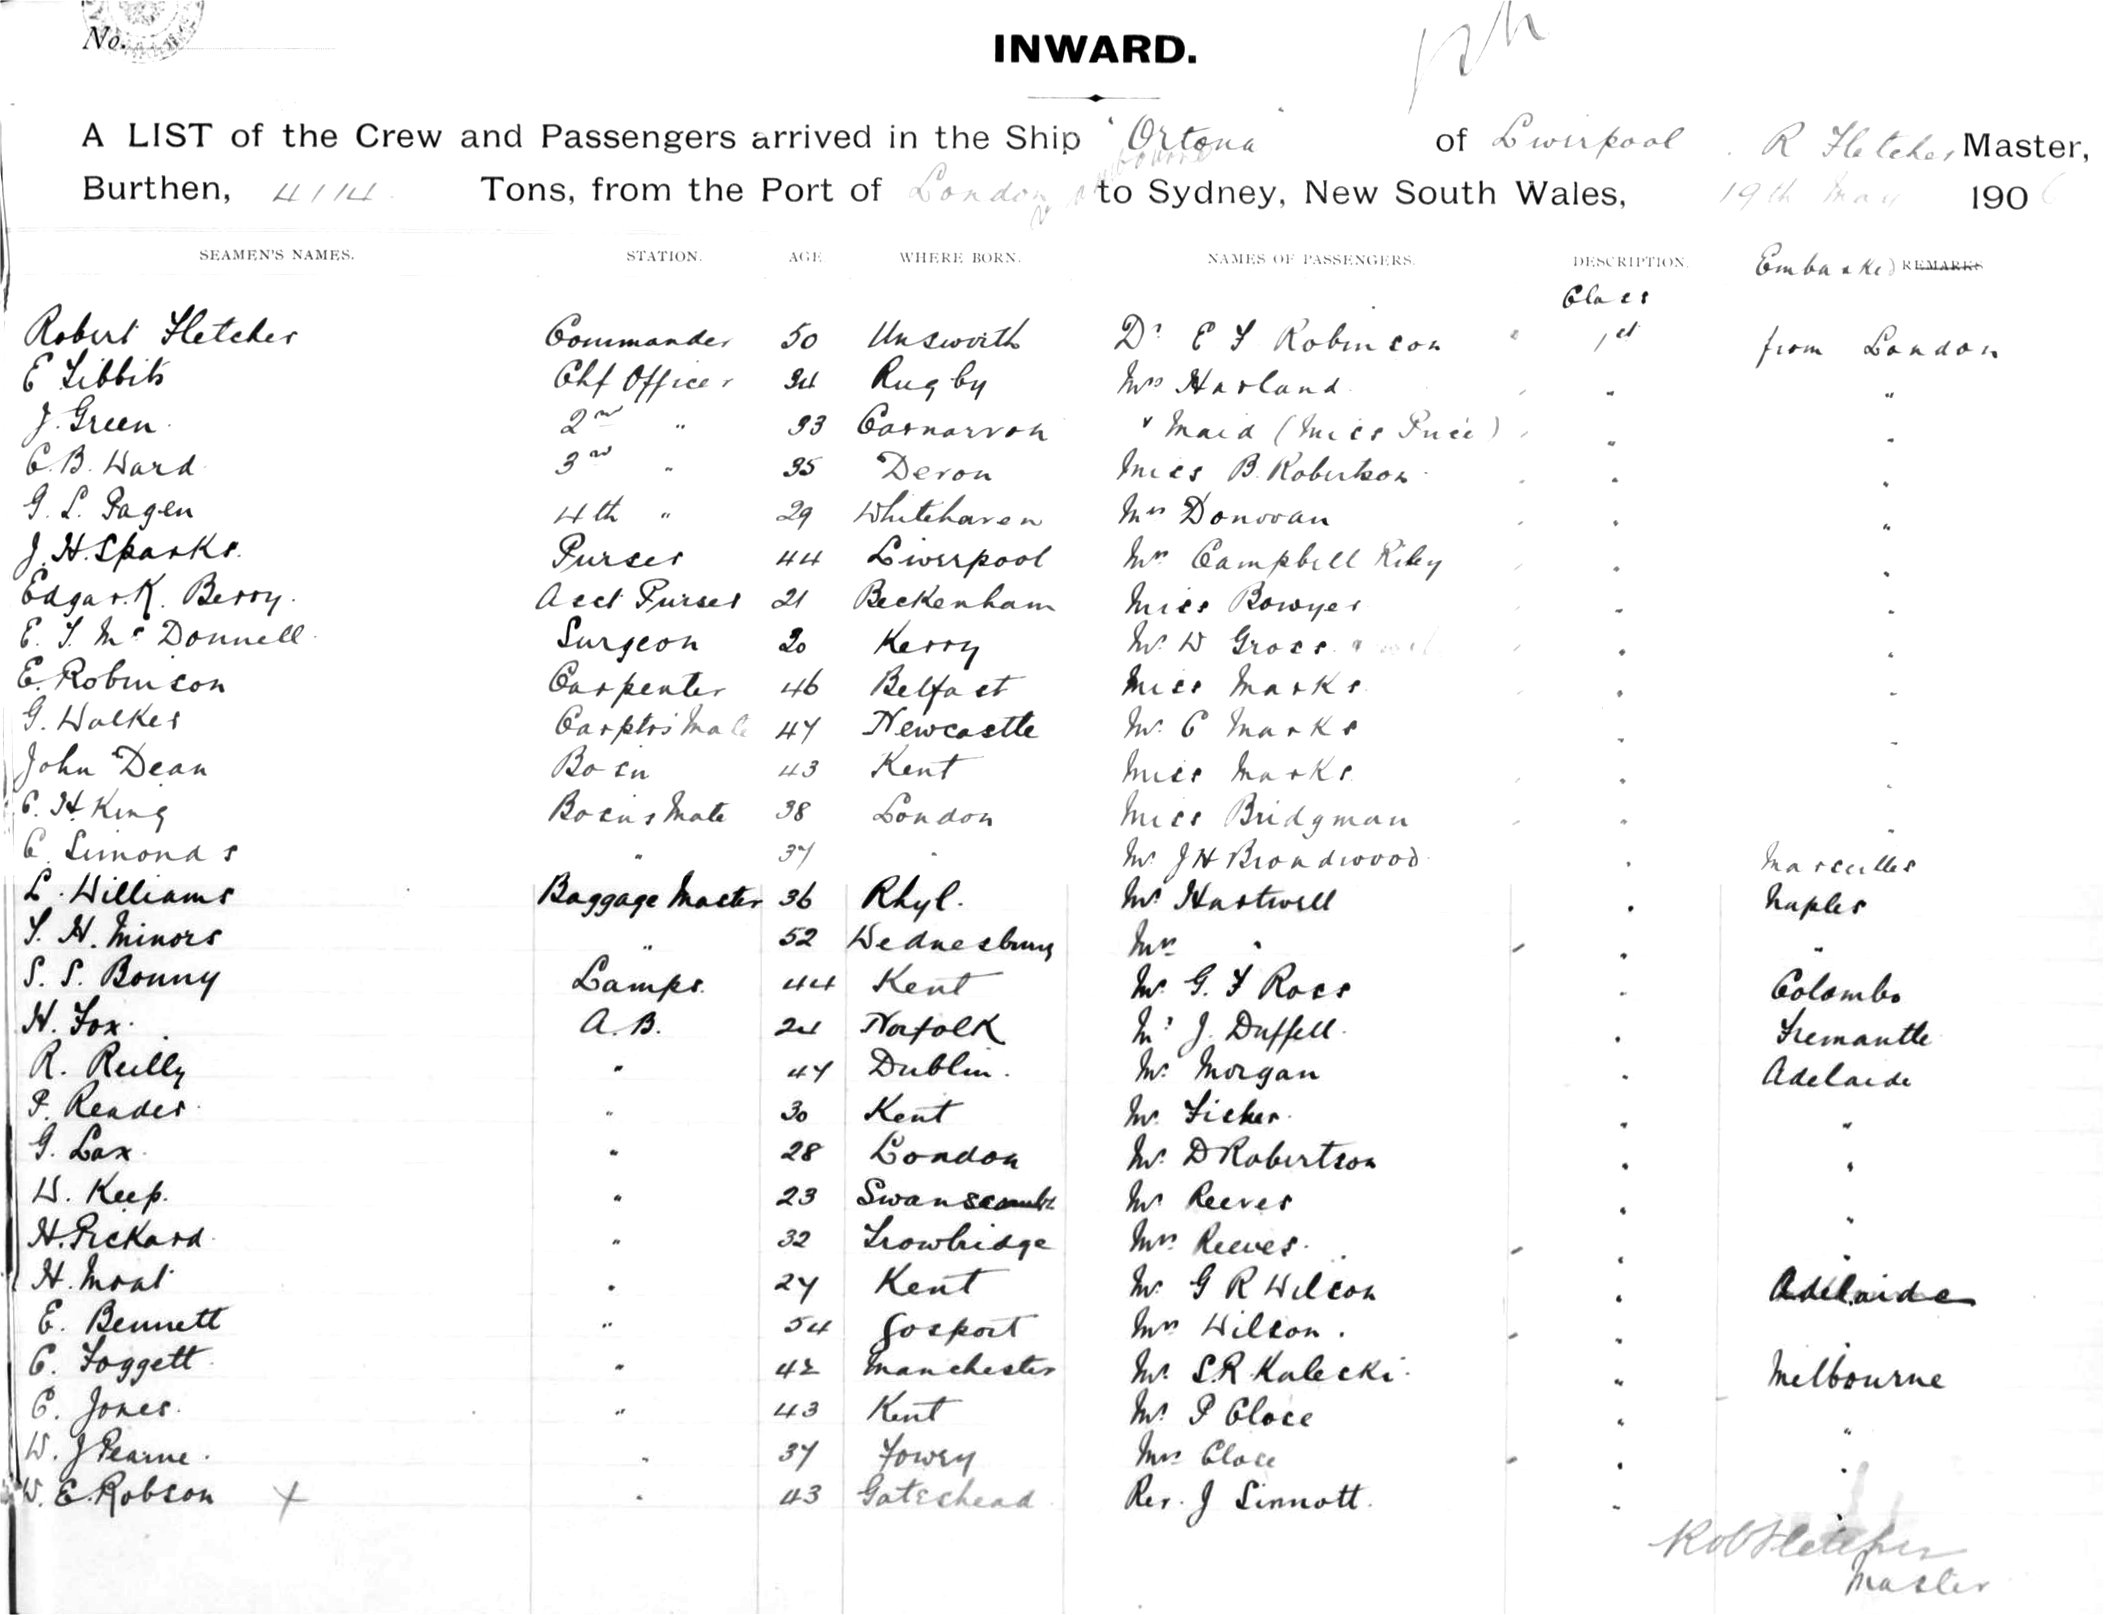 No.
INWARD.
A LIST of the Crew and Passengers arrived in the Ship "Ortona" of Liverpool. R Fletcher, Master,
Burthen, 4114. Tons, from the Port of London to Sydney, New South Wales, 19th May 190
SEAMEN'S NAMES. STATION. AGE WHERE BORN. NAMES OF PASSENGERS. DESCRIPTION. Embarked REMARKS
Class
Robert Fletcher Commander 50 Unsworth Dr E F Robinson " 1st from London
E Tibbits Chf Officer 34 Rugby Mrs Harland " "
J. Green 2nd " 33 Carnarvon " Maid (Miss Price) " "
C. B. Ward 3rd " 35 Devon Miss B. Robertson " "
G. L. Fagen 4th " 29 Whitehaven Mrs Donovan " "
J. H. Sparks. Purser 44 Liverpool Mrs Campbell Riley " "
Edgar. K. Berry. Asst Purser 21 Beckenham Miss Bowyer " "
E. T. Mc Donnell Surgeon Kerry Mr W Gross " "
E. Robinson Carpenter 46 Belfast Miss Marks " "
G. Walker Carptrs Mate 47 Newcastle Mr C Marks " "
John Dean Bosn 43 Kent Miss Marks " "
C. H. King Bosns Mate 38 London Miss Bridgman " "
C. Simonds " 37 " Mr J H Broadwood " Marseilles
L. Williams Baggage Master 36 Rhyl. Mr Hartwell " Naples
T. H. Minors " 52 Wednesbury Mrs " " "
S. S. Bonny Lamps. 44 Kent Mr G. F Ross " Colombo
H. Fox. A. B. 24 Norfolk Mr J. Duffell " Fremantle
R. Reilly " 47 Dublin. Mr Morgan " Adelaide
P. Reader " 30 Kent Mr Fisher. " "
G. Lax. " 28 London Mr D Robertson " "
W. Keep. " 23 Swanscombe Mr Reeves " "
H. Pickard " 32 Trowbridge Mrs Reeves. " "
H. Moat " 27 Kent Mr G R Wilson " Adelaide
E. Bennett " 54 Gosport Mrs Wilson. " "
C. Foggett " 42 Manchester Mr S. R. Kalecki. " Melbourne
C. Jones. " 43 Kent Mr P Close " "
W. J Pearne. " 37 Fowey Mrs Close " "
W. E. Robson X " 43 Gateshead Rev. J Sinnott. " "
Rob Fletcher
Master